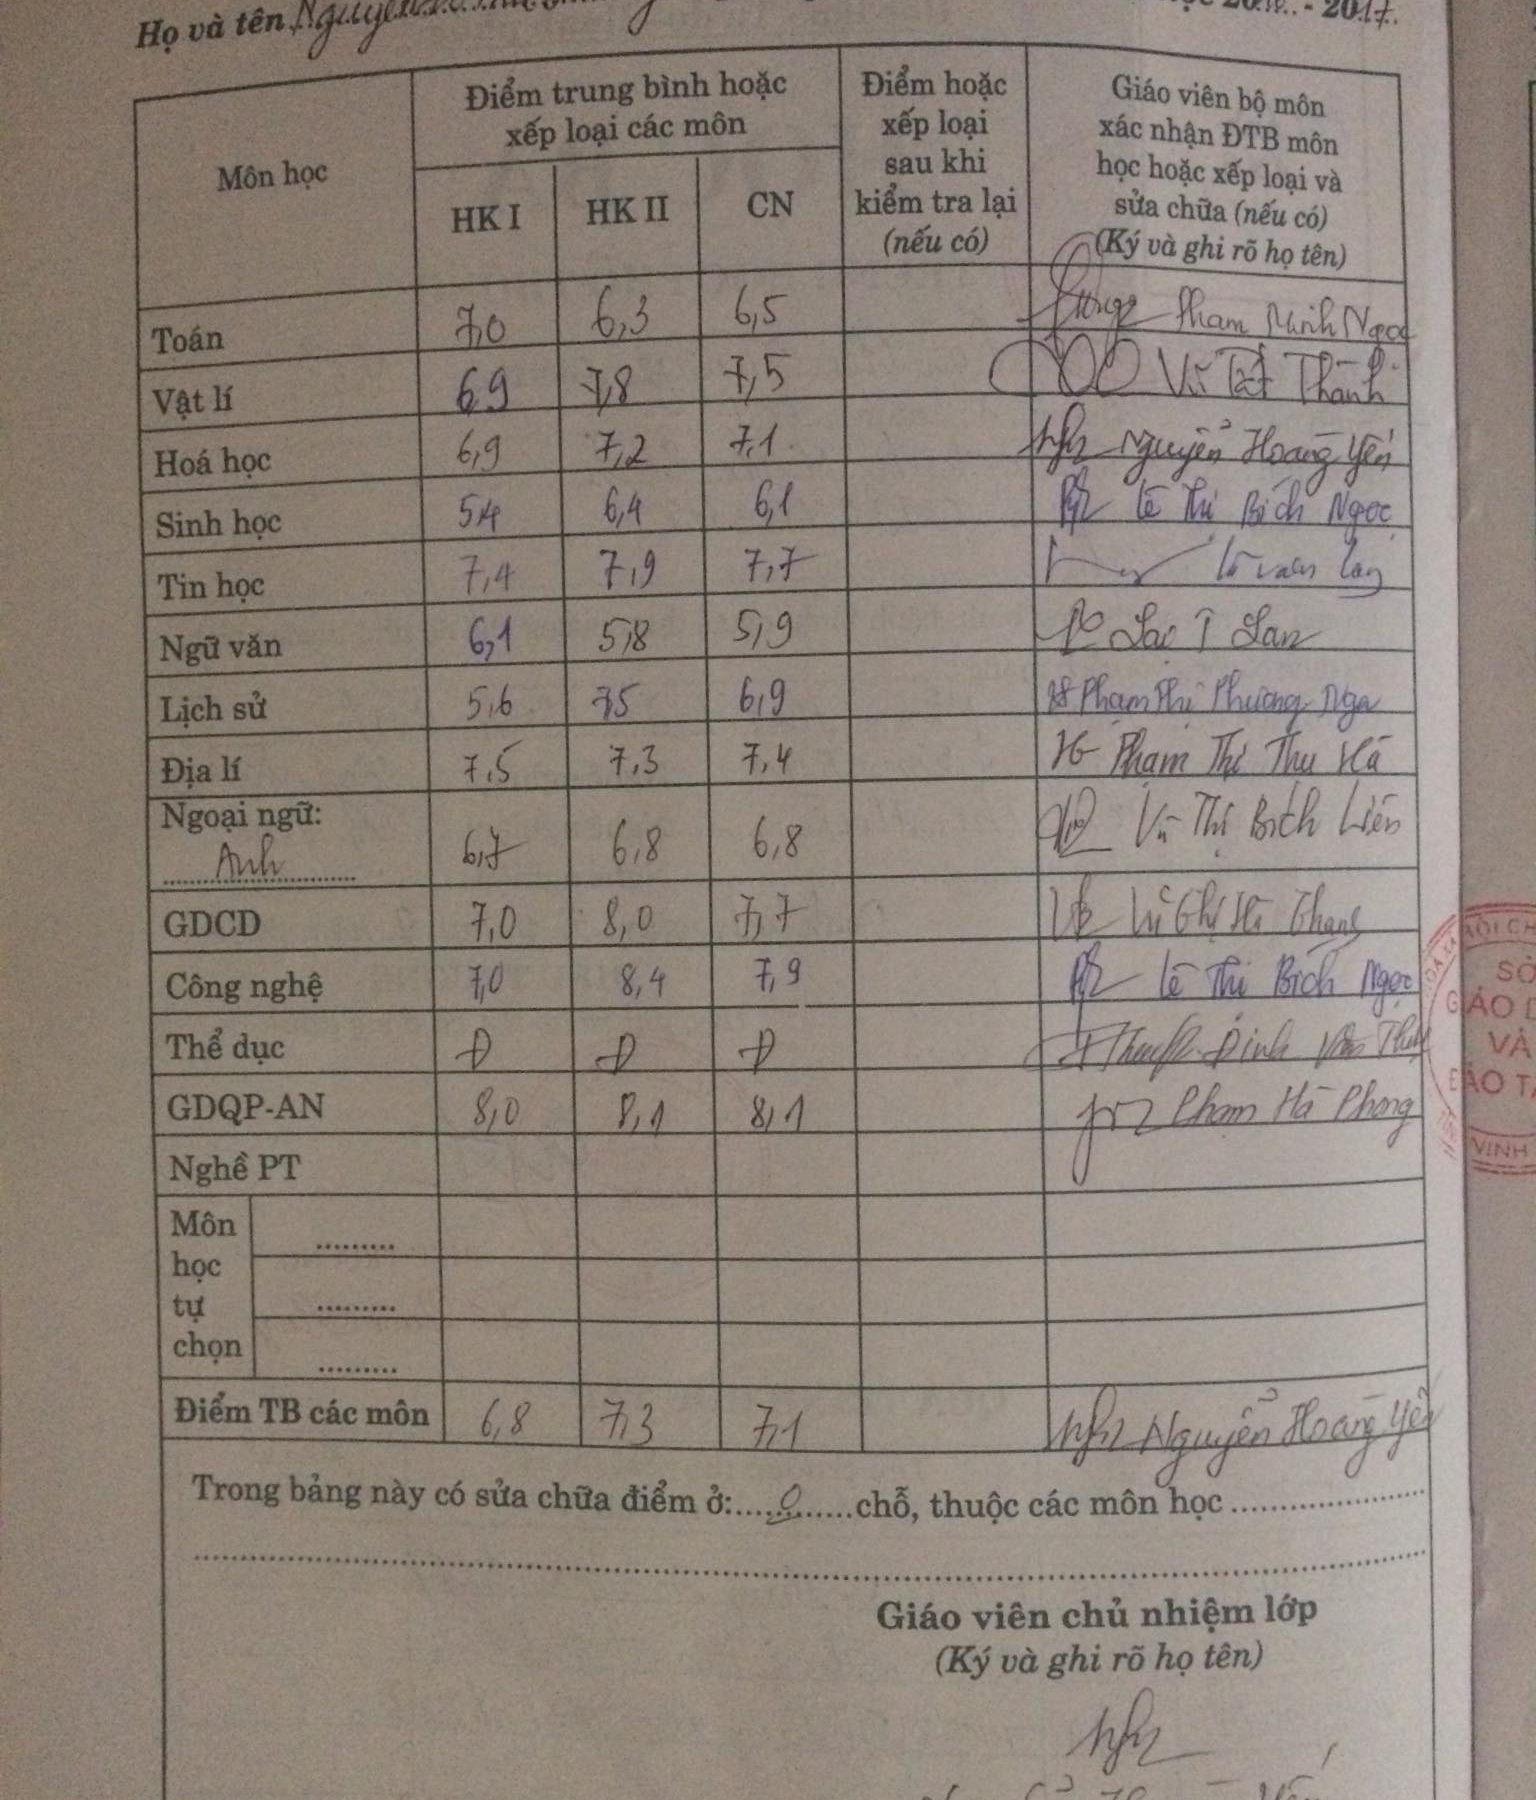 Họ và tên Nguyễn
- 2017.
Môn học
Điểm trung bình hoặc
xếp loại các môn
HK I HK II CN
Điểm hoặc
xếp loại
sau khi
kiểm tra lại
(nếu có)
Giáo viên bộ môn
xác nhận ĐTB môn
học hoặc xếp loại và
sửa chữa (nếu có)
(Ký và ghi rõ họ tên)
Toán 7,0 6,3 6,5 Phạm Minh Ngọc
Vật lí 6,9 7,8 7,5 Vũ Tất Thành
Hoá học 6,9 7,2 7,1 Nguyễn Hoàng Yến
Sinh học 5,4 6,4 6,1 Lê Thị Bích Ngọc
Tin học 7,4 7,9 7,7
Ngữ văn 6,1 5,8 5,9 Lan
Lịch sử 5,6 7,5 6,9 Phạm Thị Phương Nga
Địa lí 7,5 7,3 7,4 Phạm Thị Thu Hà
Ngoại ngữ:
Anh 6,7 6,8 6,8 Vũ Thị Bích Liên
GDCD 7,0 8,0 7,7
Công nghệ 7,0 8,4 7,9 Lê Thị Bích Ngọc
Thể dục Đ Đ Đ Đinh Văn
GDQP-AN 8,0 8,1 8,1 Phạm Hà Phong
Nghề PT
Môn
học
tự
chọn
Điểm TB các môn 6,8 7,3 7,1 Nguyễn Hoàng Yến
Trong bảng này có sửa chữa điểm ở:.....0.....chỗ, thuộc các môn học
Giáo viên chủ nhiệm lớp
(Ký và ghi rõ họ tên)
SỞ
GIÁO D
VÀ
ĐÀO TẠ
VINH